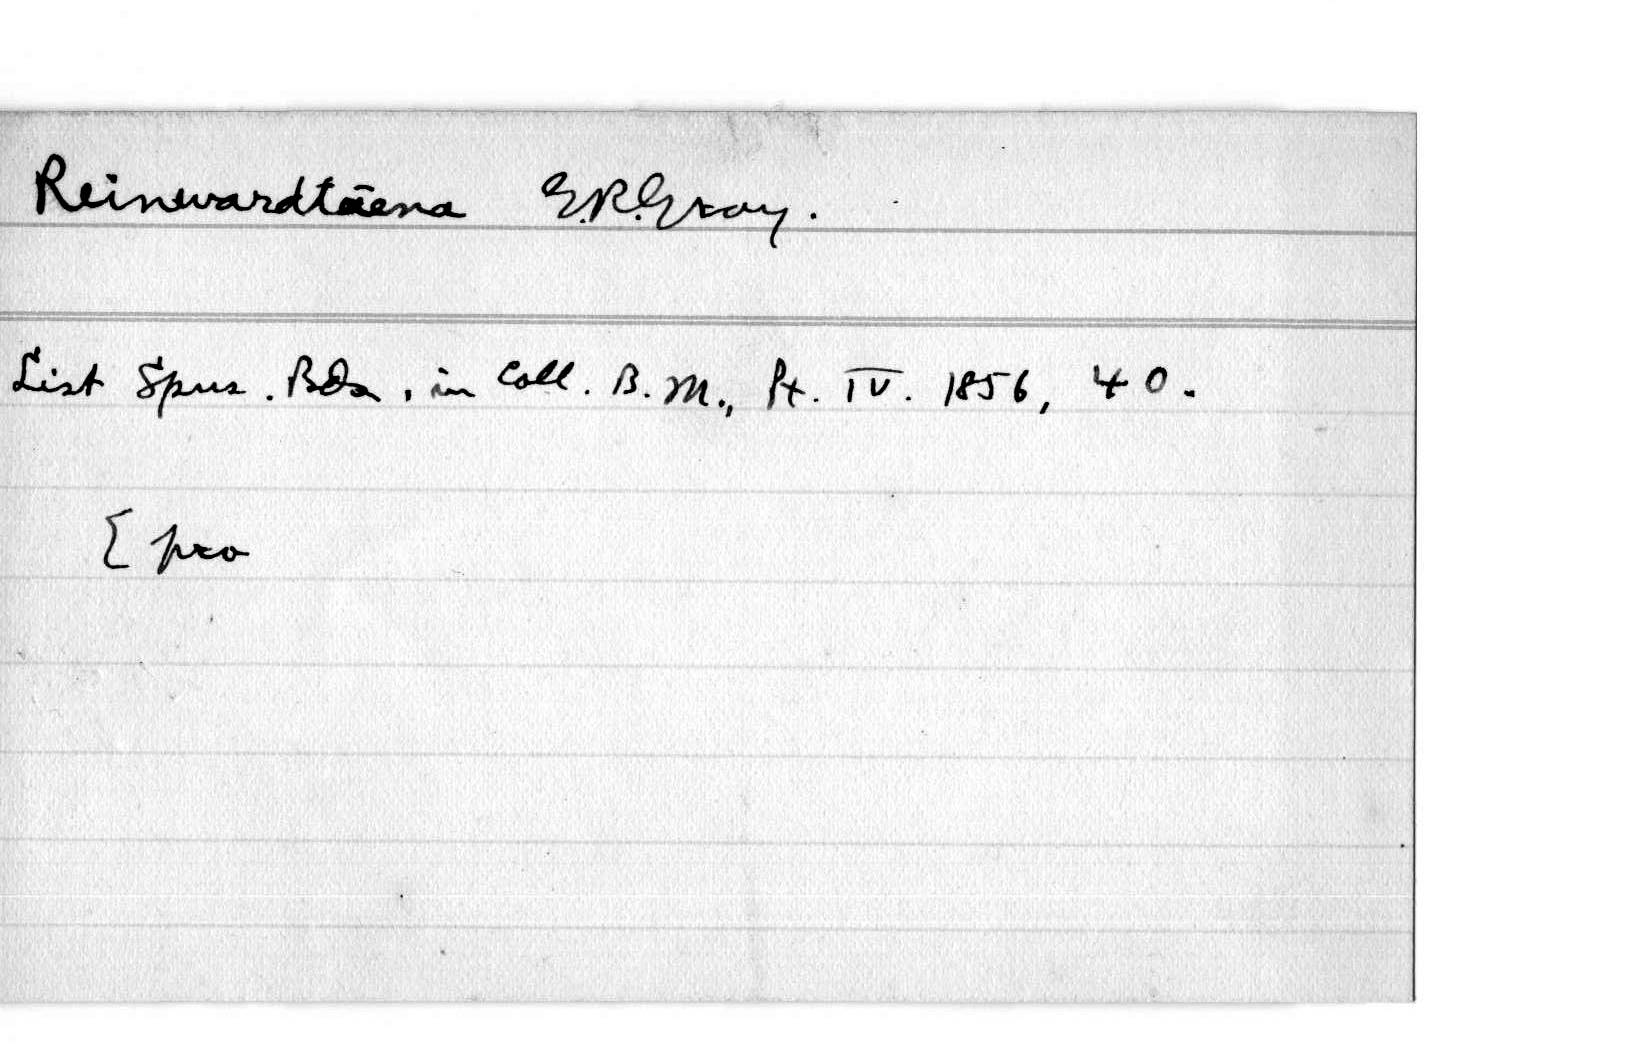 Reinwardtaena G.R.Gray.
List Spns. Bds, in Coll. B.M., Pt. IV. 1856, 40.
[ pro